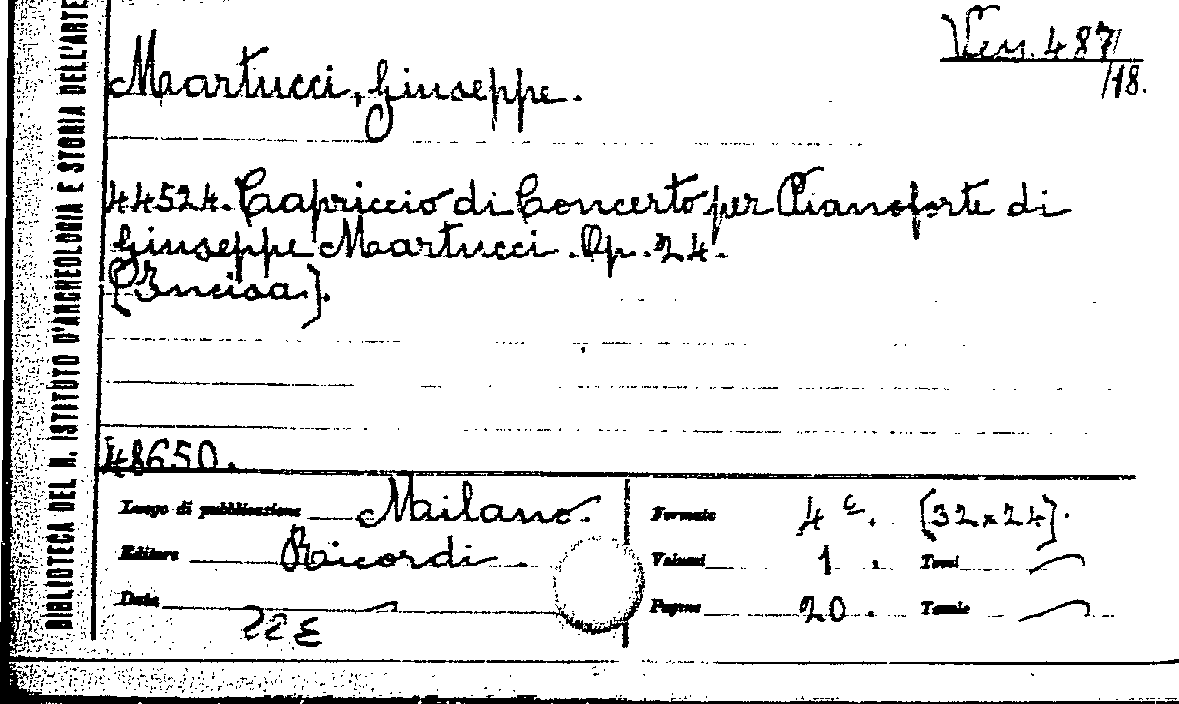 BIBLIOTECA DEL R. ISTITUTO D'ARCHEOLOGIA E STORIA DELL'ARTE
Ven. 487/
/18.
Martucci, Giuseppe.
44524. Capriccio di Concerto per Pianoforte di
Giuseppe Martucci. Op. 24.
[Incisa.].
48650.
Luogo di pubblicazione Milano.
Editore Ricordi.
Data
Formato 4°. [32x24].
Volumi 1. Tomi
Pagine 20. Tavole